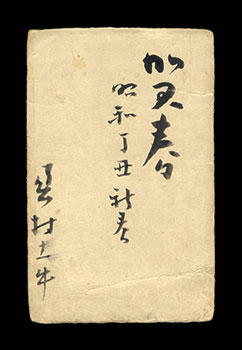 賀春
昭和丁丑新春
奥村土牛